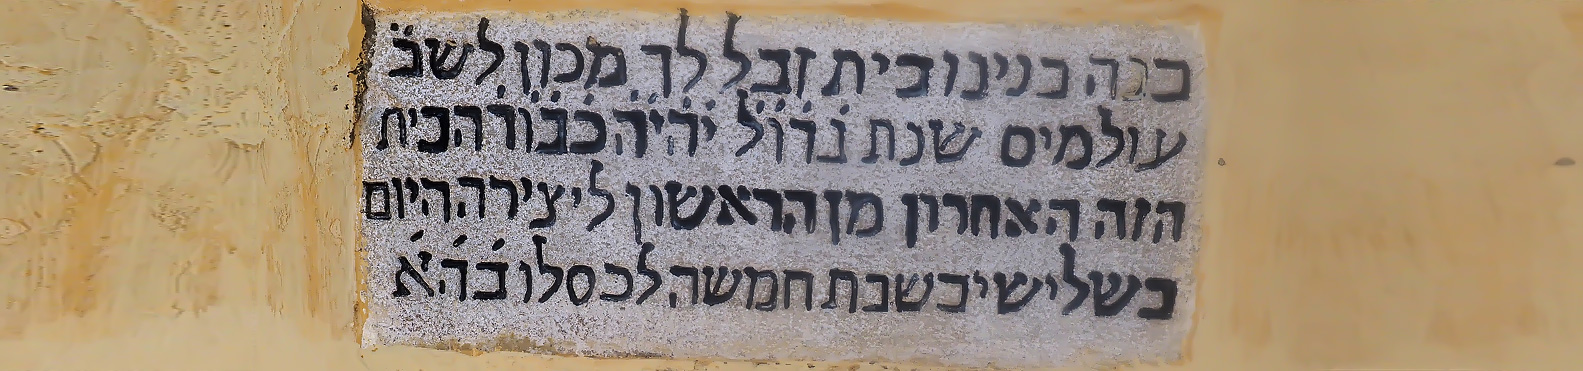 בנה בנינו בית זבל לך מכון לשב̈
עולמים שנת גׄדׄוׄלׄ יׄהׄיׄהׄ כׄבׄוׄדׄ הבית
הזה האחרון מן הראשון ליצירה היום
בשלישי בשבת חמשה לכסלו בׄהׄאׄ